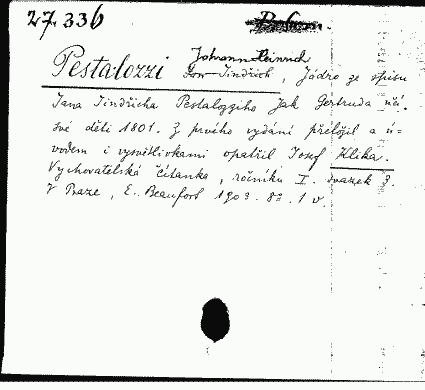 27.336
Johann Heinrich
Pestalozzi Jan Jindřich, Jádro ze spisu
Jana Jindřicha Pestalozziho Jak Gertruda učí
své děti 1801. Z prvého vydání přeložil a ú-
vodem i vysvětlivkami opatřil Josef Klika.
Vychovatelská čítanka, ročníku I. svazek 3.
V Praze, E. Beaufort 1903. 8º. 1 v.